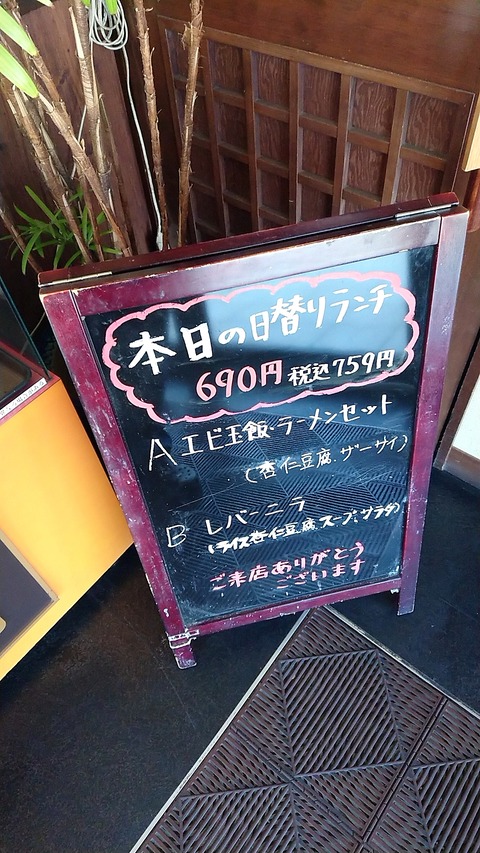 本日の日替りランチ
690円 税込759円
A エビ玉飯・ラーメンセット
(杏仁豆腐、ザーサイ)
B レバーニラ
(ライス杏仁豆腐スープ、サラダ)
ご来店ありがとう
ございます